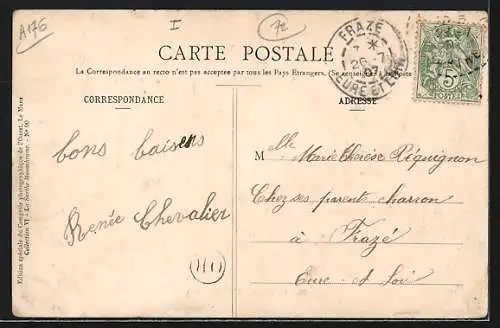 A176
I
72
CARTE POSTALE
La Correspondance au recto n'est pas acceptée par tous les Pays Etrangers. (Se renseigner à la Poste
CORRESPONDANCE
ADRESSE
FRAZÉ
26 -7
07
EURE ET LOIR
5
POSTES
bons baisers
Renée Chevalier
Melle Marie Thérèse Péquignon
Chez ses parents charron
à Frazé
Eure et Loir
Edition spéciale du Comptoir photographique de l'Ouest, Le Mans
Collection VI - La Sarthe